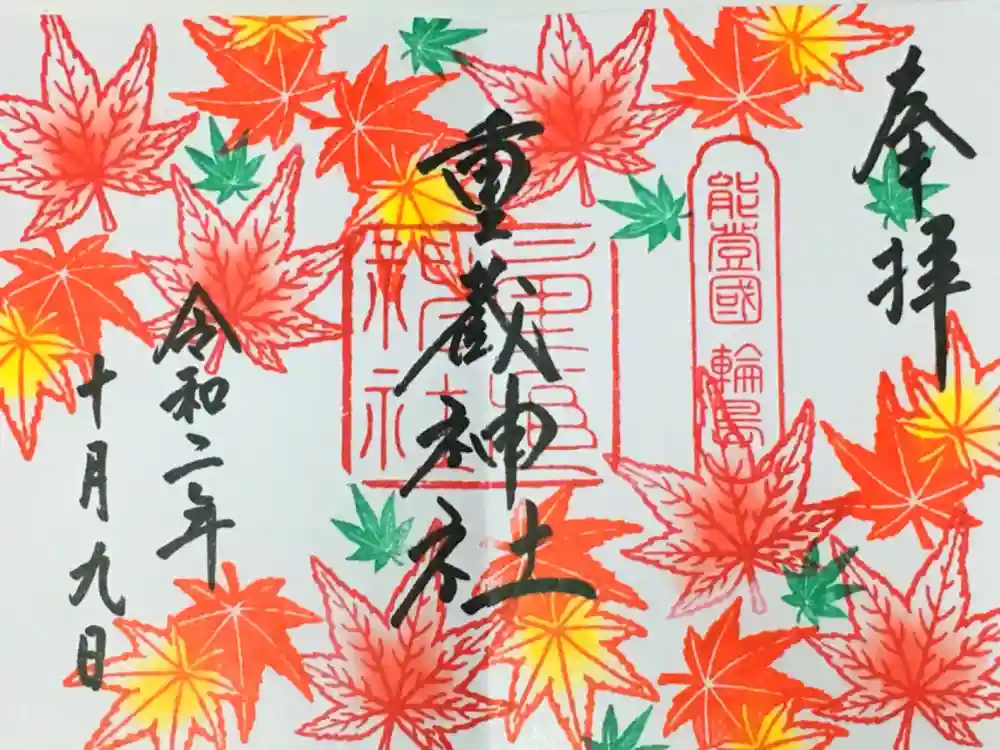 奉拝
能登國 輪島
重蔵神社
重蔵神社
令和二年
十月九日